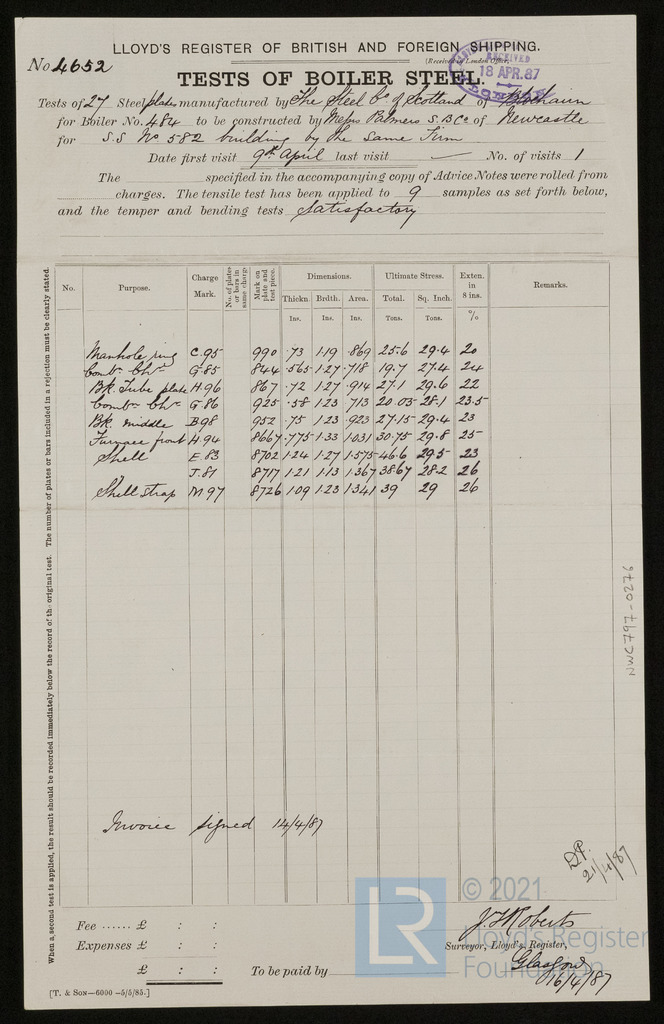 LLOYD'S REGISTER OF BRITISH AND FOREIGN SHIPPING.
No 4652
(Received in London Office,
RECEIVED
18 APR. 87
TESTS OF BOILER STEEL.
Tests of 27 Steel plates manufactured by The Steel Co. of Scotland of Blochairn
for Boiler No. 484 to be constructed by Messrs Palmers S.B Co of Newcastle
for S.S No 582 building by the same Firm
Date first visit 9th April last visit — No. of visits 1
The specified in the accompanying copy of Advice Notes were rolled from
charges. The tensile test has been applied to 9 samples as set forth below,
and the temper and bending tests Satisfactory
When a second test is applied, the result should be recorded immediately below the record of the original test. The number of plates or bars included in a rejection must be clearly stated.
No. Purpose. Charge Mark. No. of plates or bars in same charge Mark on plate and test piece. Dimensions. Ultimate Stress. Exten. in 8 ins. Remarks.
Thickn. Brdth. Area. Total. Sq. Inch.
Ins. Ins. Ins. Tons. Tons. %
Manhole ring C.95 990 .73 1.19 .869 25.6 29.4 20
Combn. Chr. G.85 844 .565 1.27 .718 19.7 27.4 24
Bk. Tube plate H.96 867 .72 1.27 .914 27.1 29.6 22
Combn. Chr. G.86 925 .58 1.23 .713 20.05 28.1 23.5
Bk. middle B98 952 .75 1.23 .923 27.15 29.4 23
Furnace front H.94 8667 .775 1.33 1.031 30.75 29.8 25
Shell E.83 8702 1.24 1.27 1.575 46.6 29.5 23
J.81 8717 1.21 1.13 1.367 38.67 28.2 26
Shell strap M97 8726 1.09 1.23 1.341 39 29 26
NWC797-0720
Invoice signed 14/4/87
D.P.
21/4/87
LR © 2021
Lloyd's Register
Foundation
Fee ...... £ : :
Expenses £ : :
£ : :
To be paid by
J.F. Roberts
Surveyor, Lloyd's Register,
Glasgow
16/4/87
[T. & SON—6000—5/5/85.]